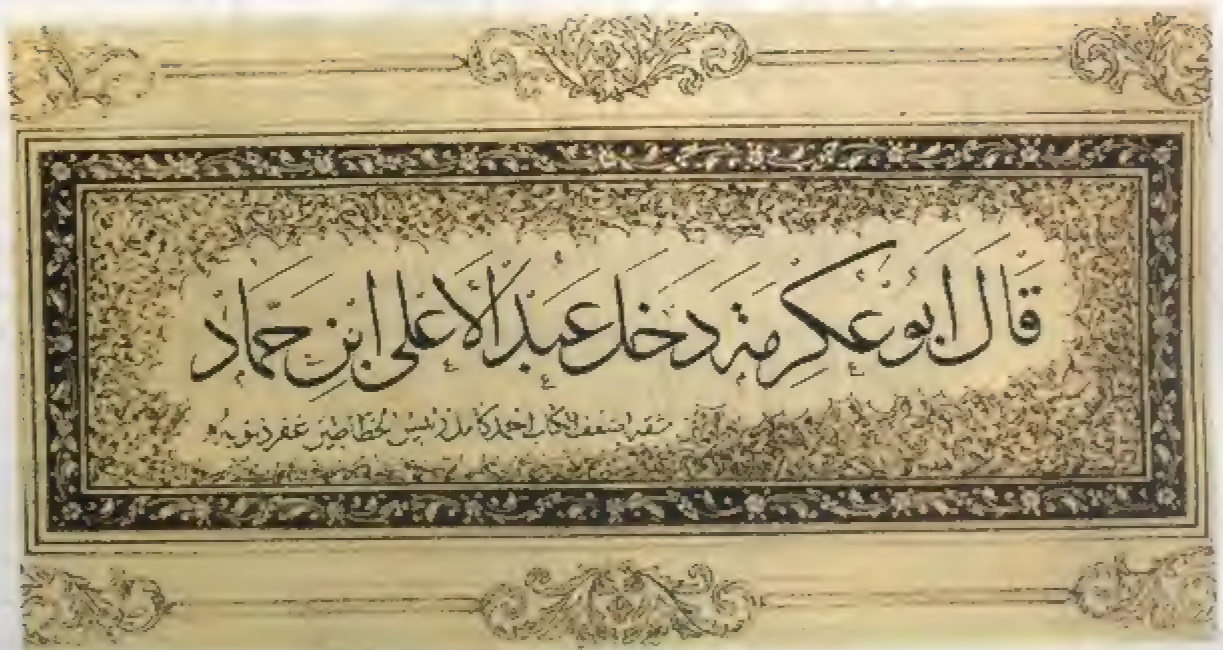 قَالَ ابو عكرمة دخل عبد الاعلى ابن حماد
مشقه اضعف الكتاب احمد كامل رئيس الخطاطين غفر ذنوبه